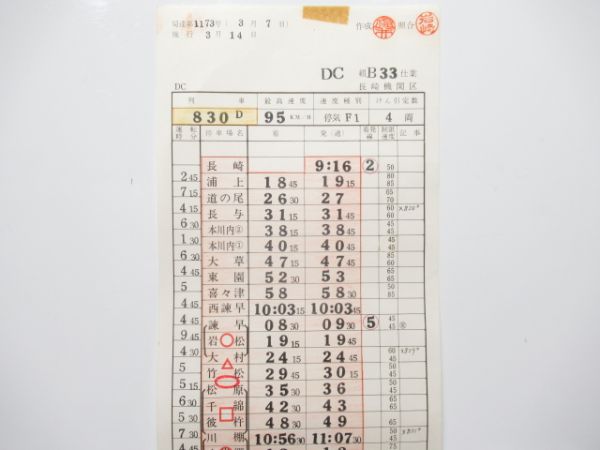 局達第1173号（3月7日）
施行 3月14日
作成 照合 岩崎
DC 組B33仕業
DC 長崎機関区
列車 最高速度 速度種別 けん引定数
830D 95KM/H 停気F1 4両
運転 時分 停車場名 着 発（通） 着発線 制限速度 記事
長崎 9:16 ② 50
2 45 浦上 18 45 19 15 80 85
7 15 道の尾 26 30 27 65 70
4 15 長与 31 15 31 45 60 60
6 30 本川内② 38 15 38 45 45
1 30 本川内① 40 15 40 45 45 45
6 30 大草 47 15 47 45
4 45 東園 52 30 53 65
5 喜々津 58 58 30 50 85
4 45 西諫早 10:03 15 10:03 45
4 45 諫早 08 30 09 30 ⑤ 45 45
9 45 岩松 19 15 19 45
4 30 大村 24 15 24 45 60
竹松 29 45 30 15
5 15 松原 35 30 36
6 30 千綿 42 30 43
5 30 彼杵 48 30 49
7 30 川棚 10:56 30 11:07 30